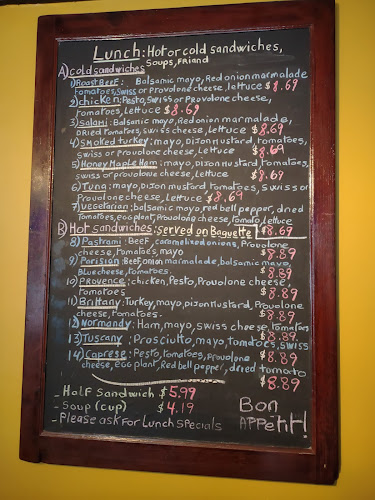 Lunch: Hot or cold sandwiches,
Soups, Friand
A) cold sandwiches
1) Roast Beef: Balsamic mayo, Red onion marmalade
tomatoes, swiss or provolone cheese, lettuce $8.69
2) chicken: Pesto, swiss or Provolone cheese,
tomatoes, Lettuce $8.69
3) salami: Balsamic mayo, Red onion marmalade,
Dried tomatoes, swiss cheese, lettuce $8.69
4) smoked turkey: mayo, Dijon mustard, tomatoes,
swiss or provolone cheese, lettuce $8.69
5) Honey Maple Ham: mayo, Dijon mustard, tomatoes,
swiss or provolone cheese, lettuce $8.69
6) Tuna: mayo, Dijon mustard, tomatoes, swiss or
Provolone cheese, lettuce $8.69
7) Vegetarian: balsamic mayo, red bell pepper, dried
Tomatoes, egg plant, Provolone cheese, tomato, lettuce
$8.69
B) Hot sandwiches: served on Baguette
8) Pastrami: Beef, caramelized onions, Provolone
cheese, tomatoes, mayo $8.89
9) Parisian: Beef, onion marmalade, balsamic mayo,
Blue cheese, tomatoes. $8.89
10) Provence: chicken, Pesto, Provolone cheese,
Tomatoes $8.89
11) Brittany: Turkey, mayo, dijon mustard, Provolone
cheese, Tomatoes. $8.89
12) Normandy: Ham, mayo, swiss cheese, tomatoes
$8.89
13) Tuscany: Prosciutto, mayo, tomatoes, swiss
$8.89
14) Caprese: Pesto, tomatoes, provolone
cheese, egg plant, Red bell pepper, dried tomato
$8.89
- Half Sandwich $5.99
- Soup (cup) $4.19
- Please ask For Lunch specials
Bon
Appétit!